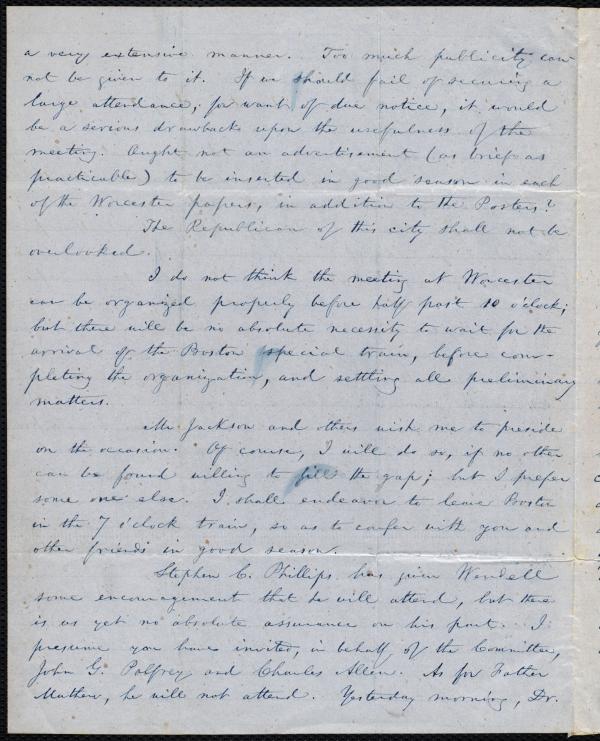 a very extensive manner. Too much publicity can
not be given to it. If we should fail of securing a
large attendance, for want of due notice, it would
be a serious drawback upon the usefulness of the
meeting. Ought not an advertisement (as brief as
practicable) to be inserted in good season in each
of the Worcester papers, in addition to the Posters?
The Republican of this city shall not be
overlooked.
I do not think the meeting at Worcester
can be organized properly before half past 10 o'clock;
but there will be no absolute necessity to wait for the
arrival of the Boston special train, before com-
pleting the organization, and settling all preliminary
matters.
Mr. Jackson and others wish me to preside
on the occasion. Of course, I will do so, if no other
can be found willing to fill the gap; but I prefer
some one else. I shall endeavor to leave Boston
in the 7 o'clock train, so as to confer with you and
other friends in good season.
Stephen C. Phillips has given Wendell
some encouragement that he will attend, but there
is as yet no absolute assurance on his part. I
presume you have invited, in behalf of the Committee,
John G. Palfrey and Charles Allen. As for Father
Mathew, he will not attend. Yesterday morning, Dr.